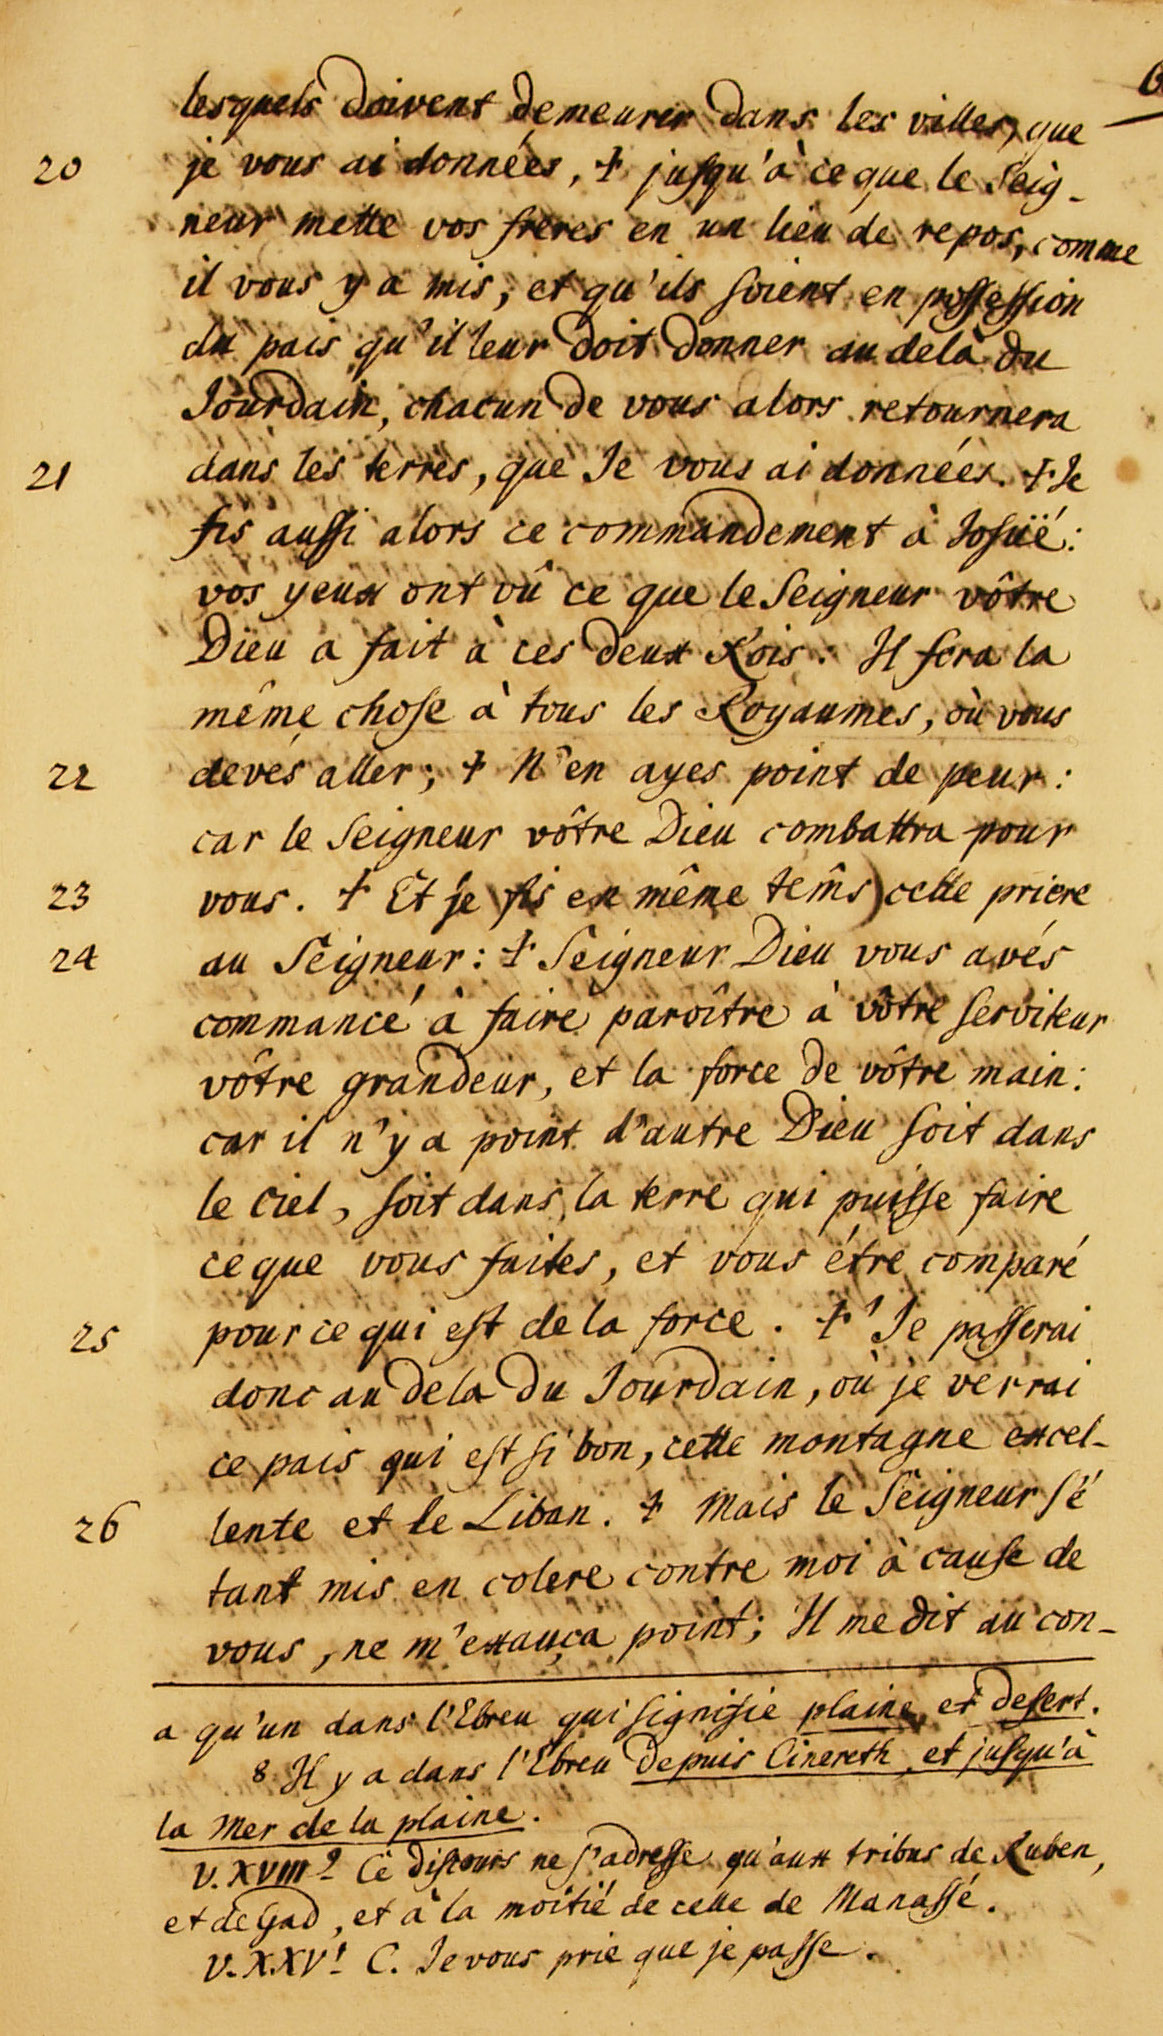 lesquels doivent demeurer dans les villes, que
20 je vous ai données, + jusqu'à ce que le Seig-
neur mette vos freres en un lieu de repos, comme
il vous y a mis, et qu'ils soient en possession
du pais qu'il leur doit donner au delà du
Jourdain, chacun de vous alors retournera
21 dans les terres, que Je vous ai données. + Je
fis aussi alors ce commandement à Josüé:
vos yeux ont vû ce que le Seigneur vôtre
Dieu a fait à ces deux Rois: Il fera la
même chose à tous les Royaumes, où vous
22 devés aller; + N'en ayes point de peur:
car le Seigneur vôtre Dieu combattra pour
23 vous. + Et je fis en même tems) cette priere
24 au Seigneur: + Seigneur Dieu vous avés
commancé à faire paroître à vôtre serviteur
vôtre grandeur, et la force de vôtre main:
car il n'y a point d'autre Dieu soit dans
le Ciel, soit dans la terre qui puisse faire
ce que vous faites, et vous être comparé
25 pour ce qui est de la force. + ¹ Je passerai
donc au dela du Jourdain, où je verrai
ce pais qui est si bon, cette montagne excel-
26 lente et le Liban. + Mais le Seigneur s'é
tant mis en colere contre moi à cause de
vous, ne m'exauça point; Il me dit au con-
a qu'un dans l'Ebreu qui signifie plaine et desert.
8 Il y a dans l'Ebreu depuis Cinereth, et jusqu'à
la Mer de la plaine.
V. XVIII 9 Ce discours ne s'adresse qu'aux tribus de Ruben,
et de Gad, et à la moitié de celle de Manassé.
V. XXV 1 C. Je vous prie que je passe.